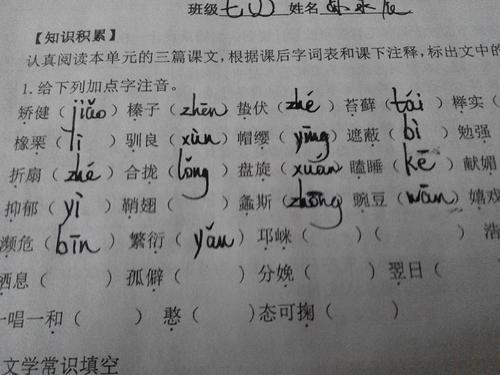 班级 七(2) 姓名
【知识积累】
认真阅读本单元的三篇课文,根据课后字词表和课下注释,标出文中的
1. 给下列加点字注音。
矫健（jiǎo）榛子（zhēn）蛰伏（zhé）苔藓（tái）榉实（
橡栗（lì）驯良（xùn）帽缨（yīng）遮蔽（bì）勉强
折扇（zhé）合拢（lǒng）盘旋（xuán）瞌睡（kē）献媚
抑郁（yì）鞘翅（ ）螽斯（zhōng）豌豆（wān）嬉戏
濒危（bīn）繁衍（yǎn）邛崃（ ）（ ）浩
栖息（ ）孤僻（ ）分娩（ ）翌日（ ）
一唱一和（ ）憨（ ）态可掬（ ）
文学常识填空